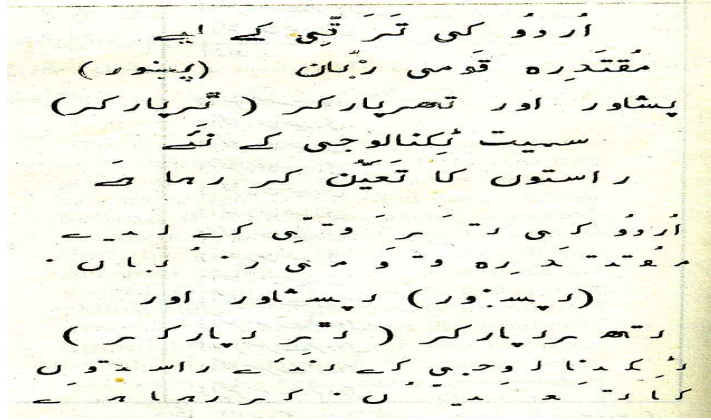 اُردوُ کی تَرَقّیِ کے لیے
مُقتَدِرہ قَومی زبَان (پښور)
پشاور اور تھرپارکر (ٿرپارکر)
سمیت ٹِکنالوجی کے نَئے
راستوں کا تَعَیّن کر رہا ہَے
اُردوُ کی تَرَقّیِ کے لیے
مُقتَدِرہ قَومی زبَان
(پښور) پشاور اور
تھرپارکر (ٿرپارکر)
راستوں
کا کر رہا ہے